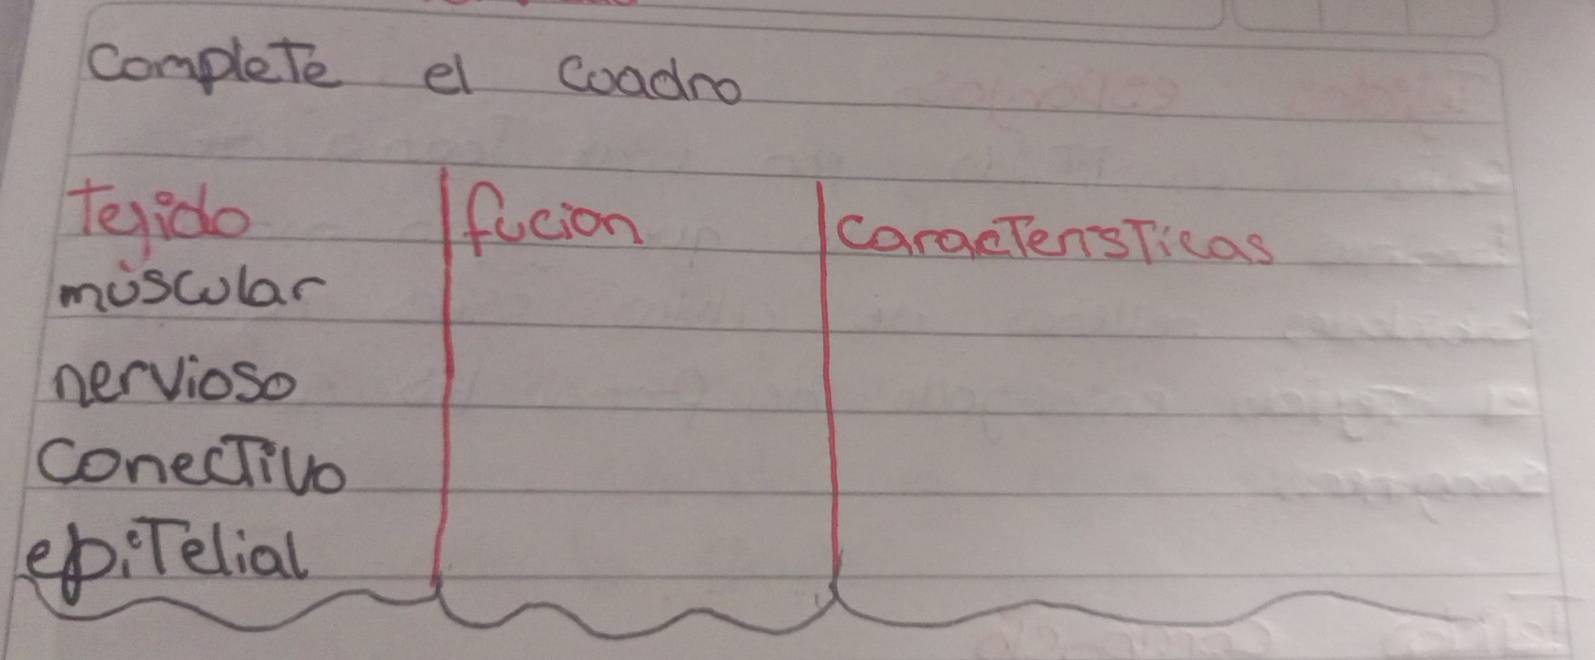 Complete el cuadro
Tejido fucion caracteristicas
muscular
nervioso
conectivo
epitelial